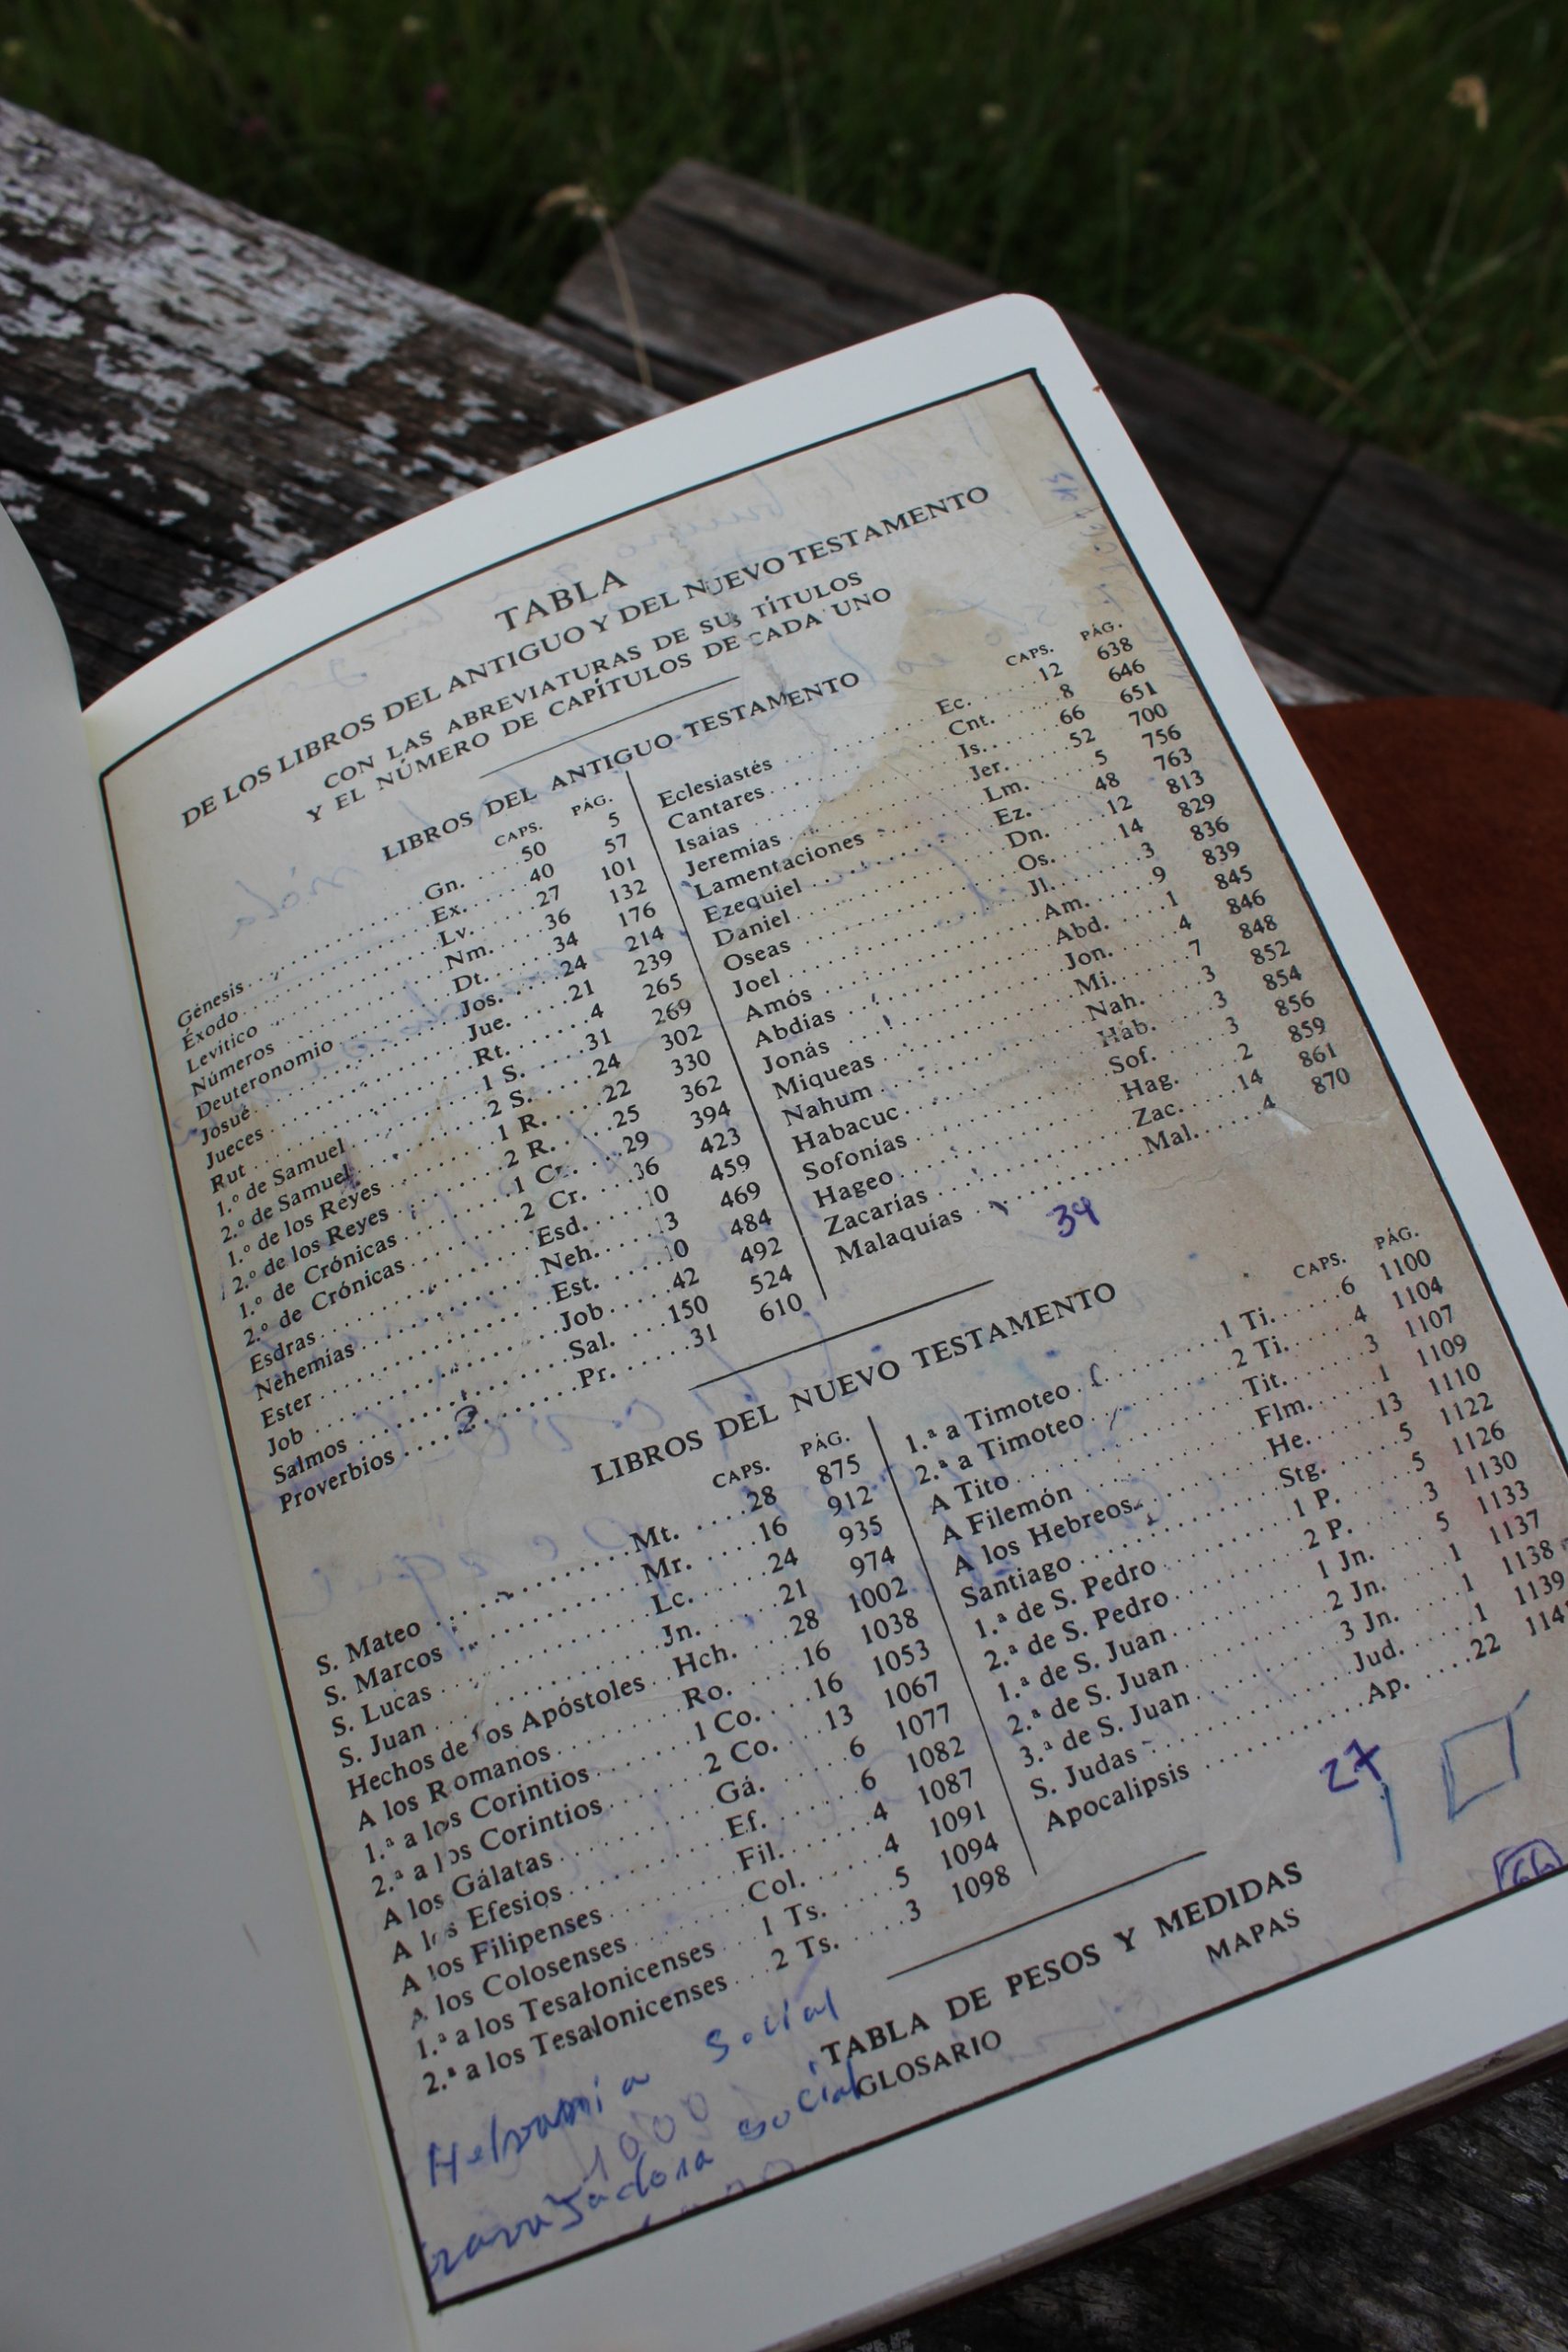 TABLA
DE LOS LIBROS DEL ANTIGUO Y DEL NUEVO TESTAMENTO
CON LAS ABREVIATURAS DE SUS TÍTULOS
Y EL NÚMERO DE CAPÍTULOS DE CADA UNO
LIBROS DEL ANTIGUO TESTAMENTO
CAPS. PÁG.
Génesis Gn. 50 5
Éxodo Ex. 40 57
Levítico Lv. 27 101
Números Nm. 36 132
Deuteronomio Dt. 34 176
Josué Jos. 24 214
Jueces Jue. 21 239
Rut Rt. 4 265
1.º de Samuel 1 S. 31 269
2.º de Samuel 2 S. 24 302
1.º de los Reyes 1 R. 22 330
2.º de los Reyes 2 R. 25 362
1.º de Crónicas 1 Cr. 29 394
2.º de Crónicas 2 Cr. 36 423
Esdras Esd. 10 459
Nehemías Neh. 13 469
Ester Est. 10 484
Job Job 42 492
Salmos Sal. 150 524
Proverbios Pr. 31 610
CAPS. PÁG.
Eclesiastés Ec. 12 638
Cantares Cnt. 8 646
Isaías Is. 66 651
Jeremías Jer. 52 700
Lamentaciones Lm. 5 756
Ezequiel Ez. 48 763
Daniel Dn. 12 813
Oseas Os. 14 829
Joel Jl. 3 836
Amós Am. 9 839
Abdías Abd. 1 845
Jonás Jon. 4 846
Miqueas Mi. 7 848
Nahum Nah. 3 852
Habacuc Hab. 3 854
Sofonías Sof. 3 856
Hageo Hag. 2 859
Zacarías Zac. 14 861
Malaquías Mal. 4 870
39
LIBROS DEL NUEVO TESTAMENTO
CAPS. PÁG.
S. Mateo Mt. 28 875
S. Marcos Mr. 16 912
S. Lucas Lc. 24 935
S. Juan Jn. 21 974
Hechos de los Apóstoles Hch. 28 1002
A los Romanos Ro. 16 1038
1.ª a los Corintios 1 Co. 16 1053
2.ª a los Corintios 2 Co. 13 1067
A los Gálatas Gá. 6 1077
A los Efesios Ef. 6 1082
A los Filipenses Fil. 4 1087
A los Colosenses Col. 4 1091
1.ª a los Tesalonicenses 1 Ts. 5 1094
2.ª a los Tesalonicenses 2 Ts. 3 1098
CAPS. PÁG.
1.ª a Timoteo 1 Ti. 6 1100
2.ª a Timoteo 2 Ti. 4 1104
A Tito Tit. 3 1107
A Filemón Flm. 1 1109
A los Hebreos He. 13 1110
Santiago Stg. 5 1122
1.ª de S. Pedro 1 P. 5 1126
2.ª de S. Pedro 2 P. 3 1130
1.ª de S. Juan 1 Jn. 5 1133
2.ª de S. Juan 2 Jn. 1 1137
3.ª de S. Juan 3 Jn. 1 1138
S. Judas Jud. 1 1139
Apocalipsis Ap. 22
27
66
TABLA DE PESOS Y MEDIDAS
GLOSARIO MAPAS
social
social